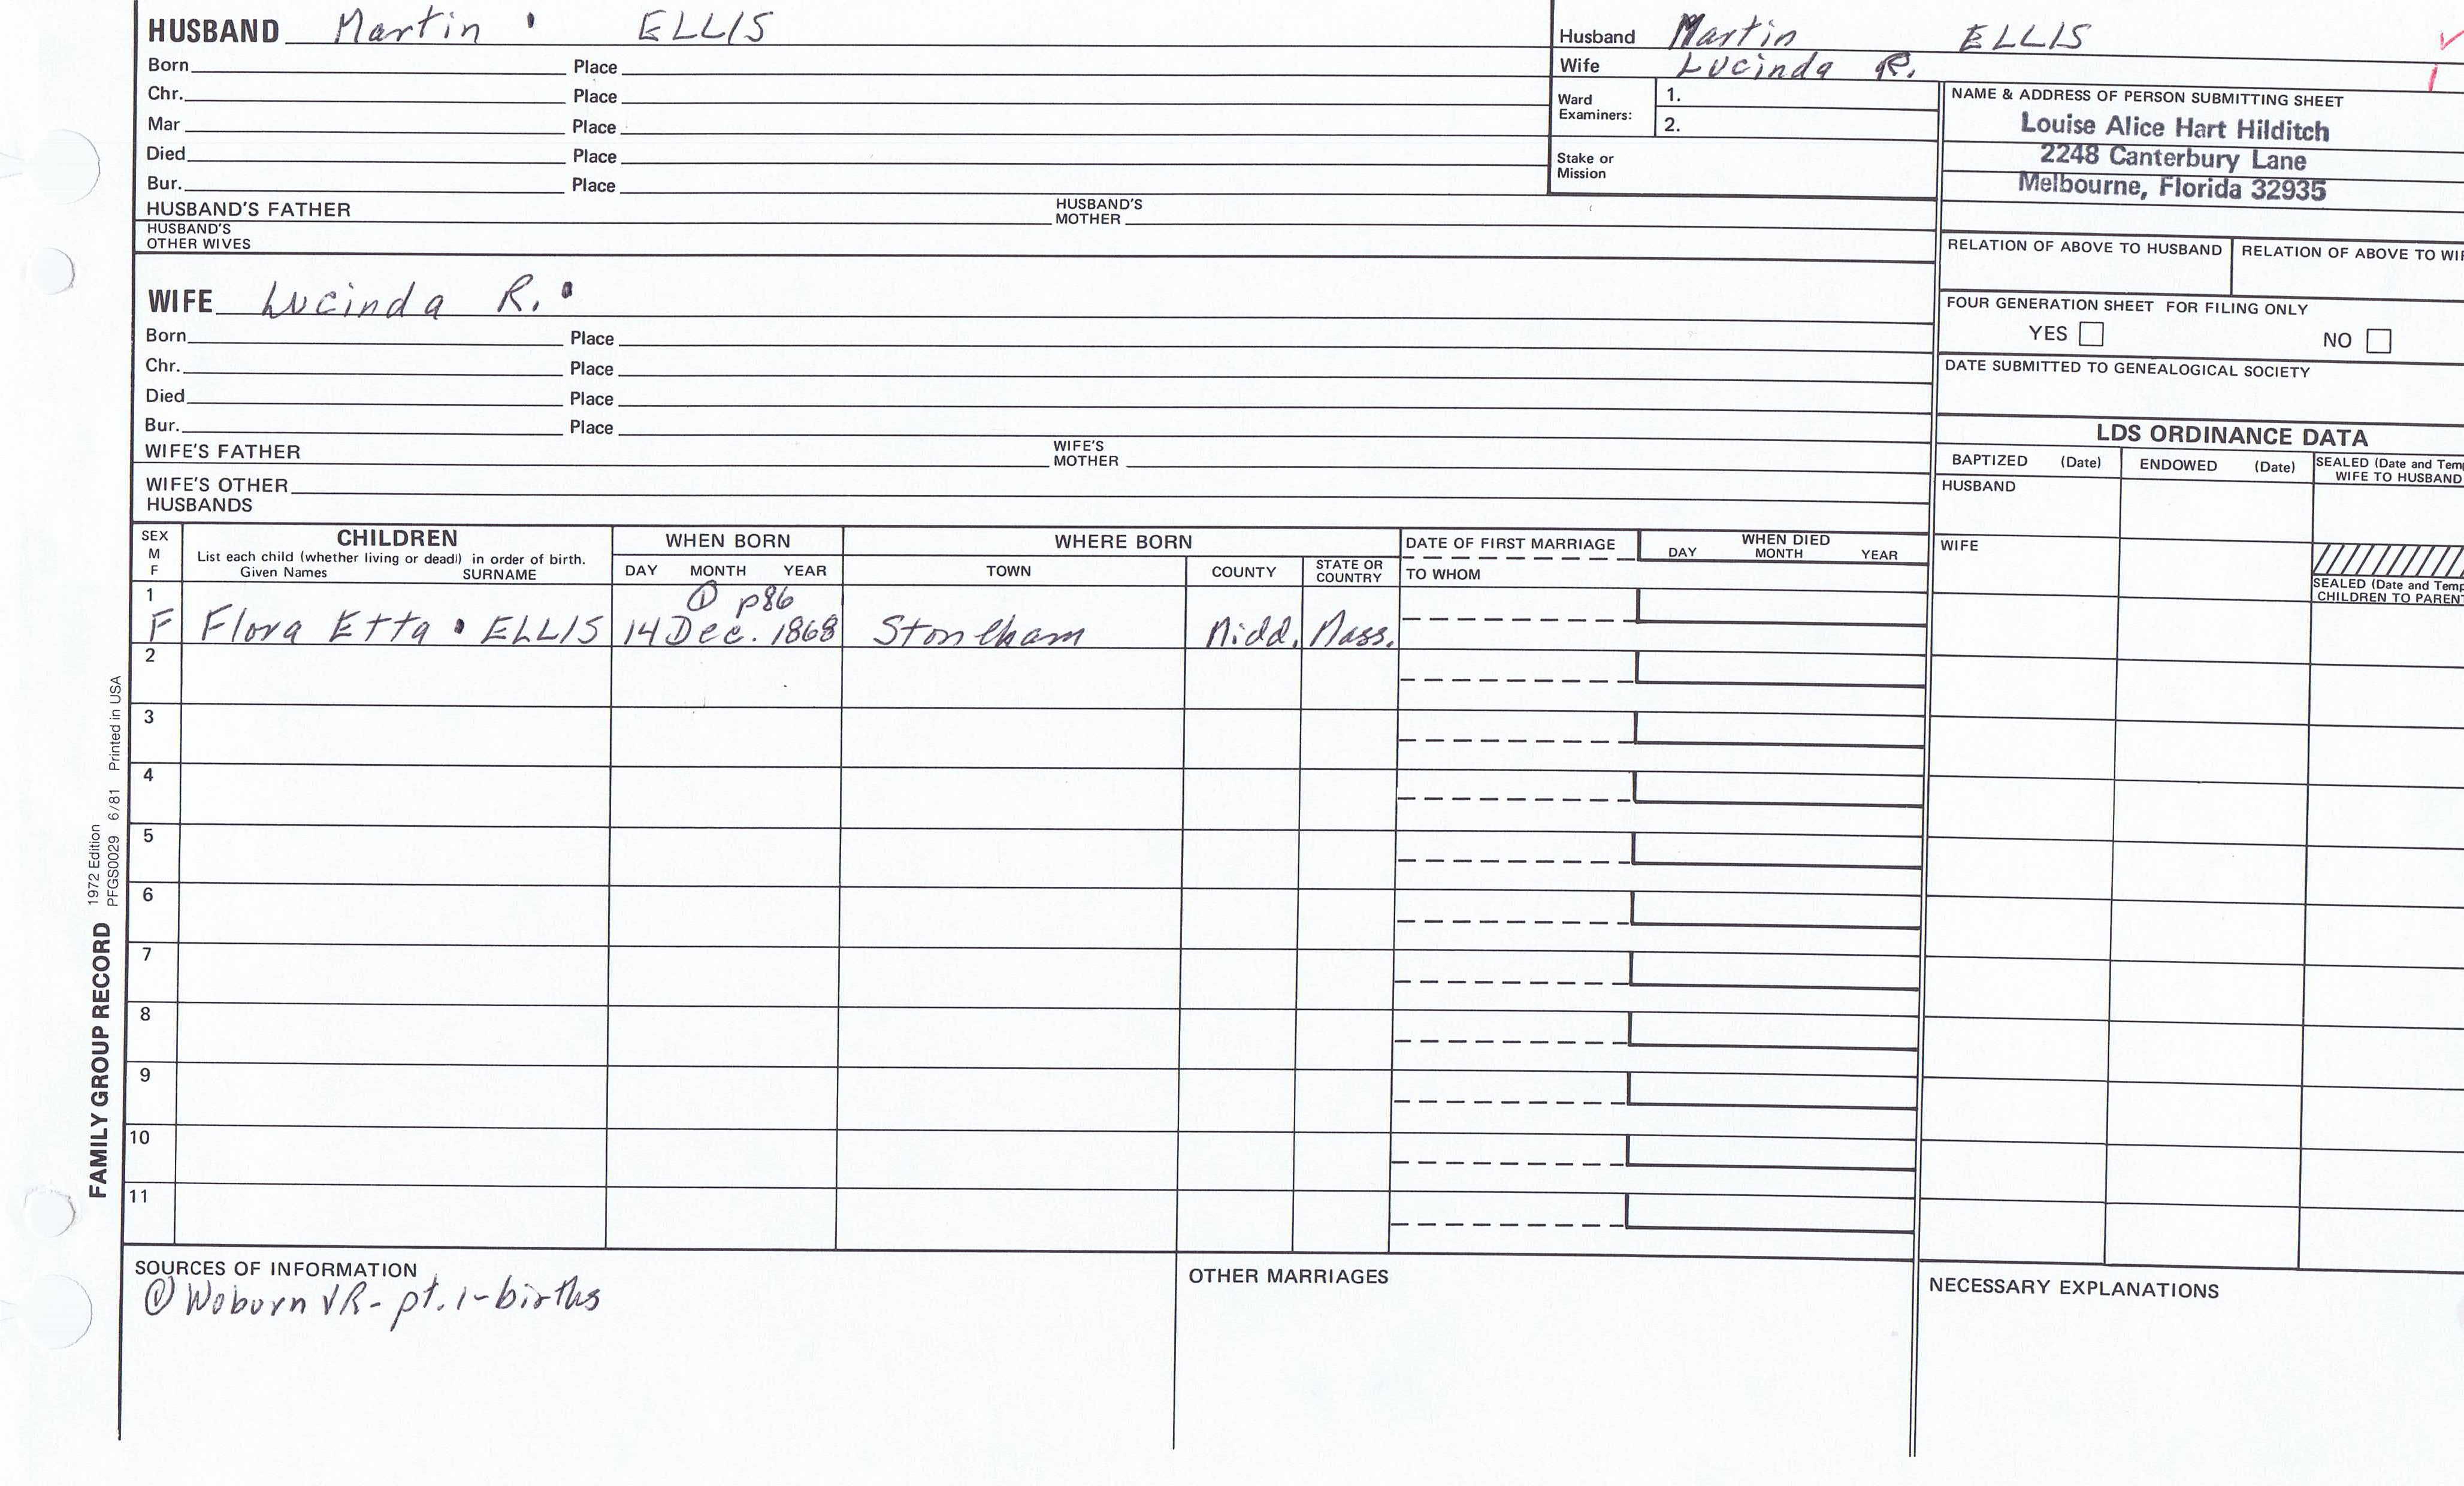 HUSBAND Martin ELLIS
Born Place
Chr. Place
Mar Place
Died Place
Bur. Place
HUSBAND'S FATHER HUSBAND'S MOTHER
HUSBAND'S OTHER WIVES
WIFE Lucinda R.
Born Place
Chr. Place
Died Place
Bur. Place
WIFE'S FATHER WIFE'S MOTHER
WIFE'S OTHER HUSBANDS
Husband Martin ELLIS
Wife Lucinda R.
Ward Examiners: 1.
2.
Stake or Mission
NAME & ADDRESS OF PERSON SUBMITTING SHEET
Louise Alice Hart Hilditch
2248 Canterbury Lane
Melbourne, Florida 32935
RELATION OF ABOVE TO HUSBAND RELATION OF ABOVE TO WIF
FOUR GENERATION SHEET FOR FILING ONLY
YES NO
DATE SUBMITTED TO GENEALOGICAL SOCIETY
LDS ORDINANCE DATA
BAPTIZED (Date) ENDOWED (Date) SEALED (Date and Temp
WIFE TO HUSBAND
HUSBAND
WIFE
SEALED (Date and Temp
CHILDREN TO PARENT
SEX
M
F
CHILDREN
List each child (whether living or dead) in order of birth.
Given Names SURNAME
WHEN BORN
DAY MONTH YEAR
WHERE BORN
TOWN COUNTY STATE OR COUNTRY
DATE OF FIRST MARRIAGE
TO WHOM
WHEN DIED
DAY MONTH YEAR
1 ① p86
F Flora Etta ELLIS 14 Dec. 1868 Stoneham Midd. Mass.
2
3
4
5
6
7
8
9
10
11
SOURCES OF INFORMATION
① Woburn VR- pt. 1- births
OTHER MARRIAGES
NECESSARY EXPLANATIONS
FAMILY GROUP RECORD
1972 Edition
PFGS0029 6/81 Printed in USA